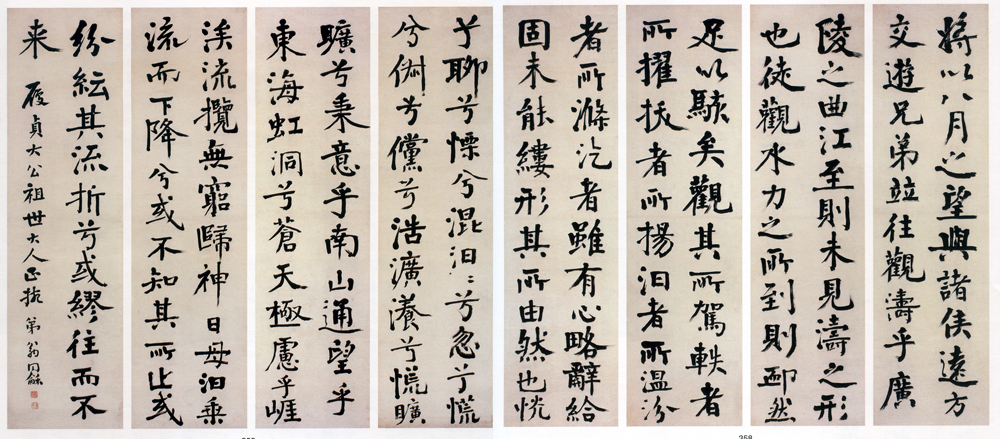 將以八月之望與諸侯遠方
交遊兄弟竝往觀濤乎廣
陵之曲江至則未見濤之形
也徒觀水力之所到則卹然
足以駭矣觀其所駕軼者
所擢拔者所揚汩者所溫汾
者所滌汔者雖有心略辭給
固未能縷形其所由然也怳
兮聊兮慄兮混汩〻兮忽兮慌
兮俶兮儻兮浩瀇瀁兮慌曠
曠兮秉意乎南山通望乎
東海虹洞兮蒼天極慮乎崕
涘流攬無窮歸神日母汩乘
流而下降兮或不知其所止或
紛紜其流折兮或繆往而不
来 履貞大公祖世大人正捥 弟翁同龢
358